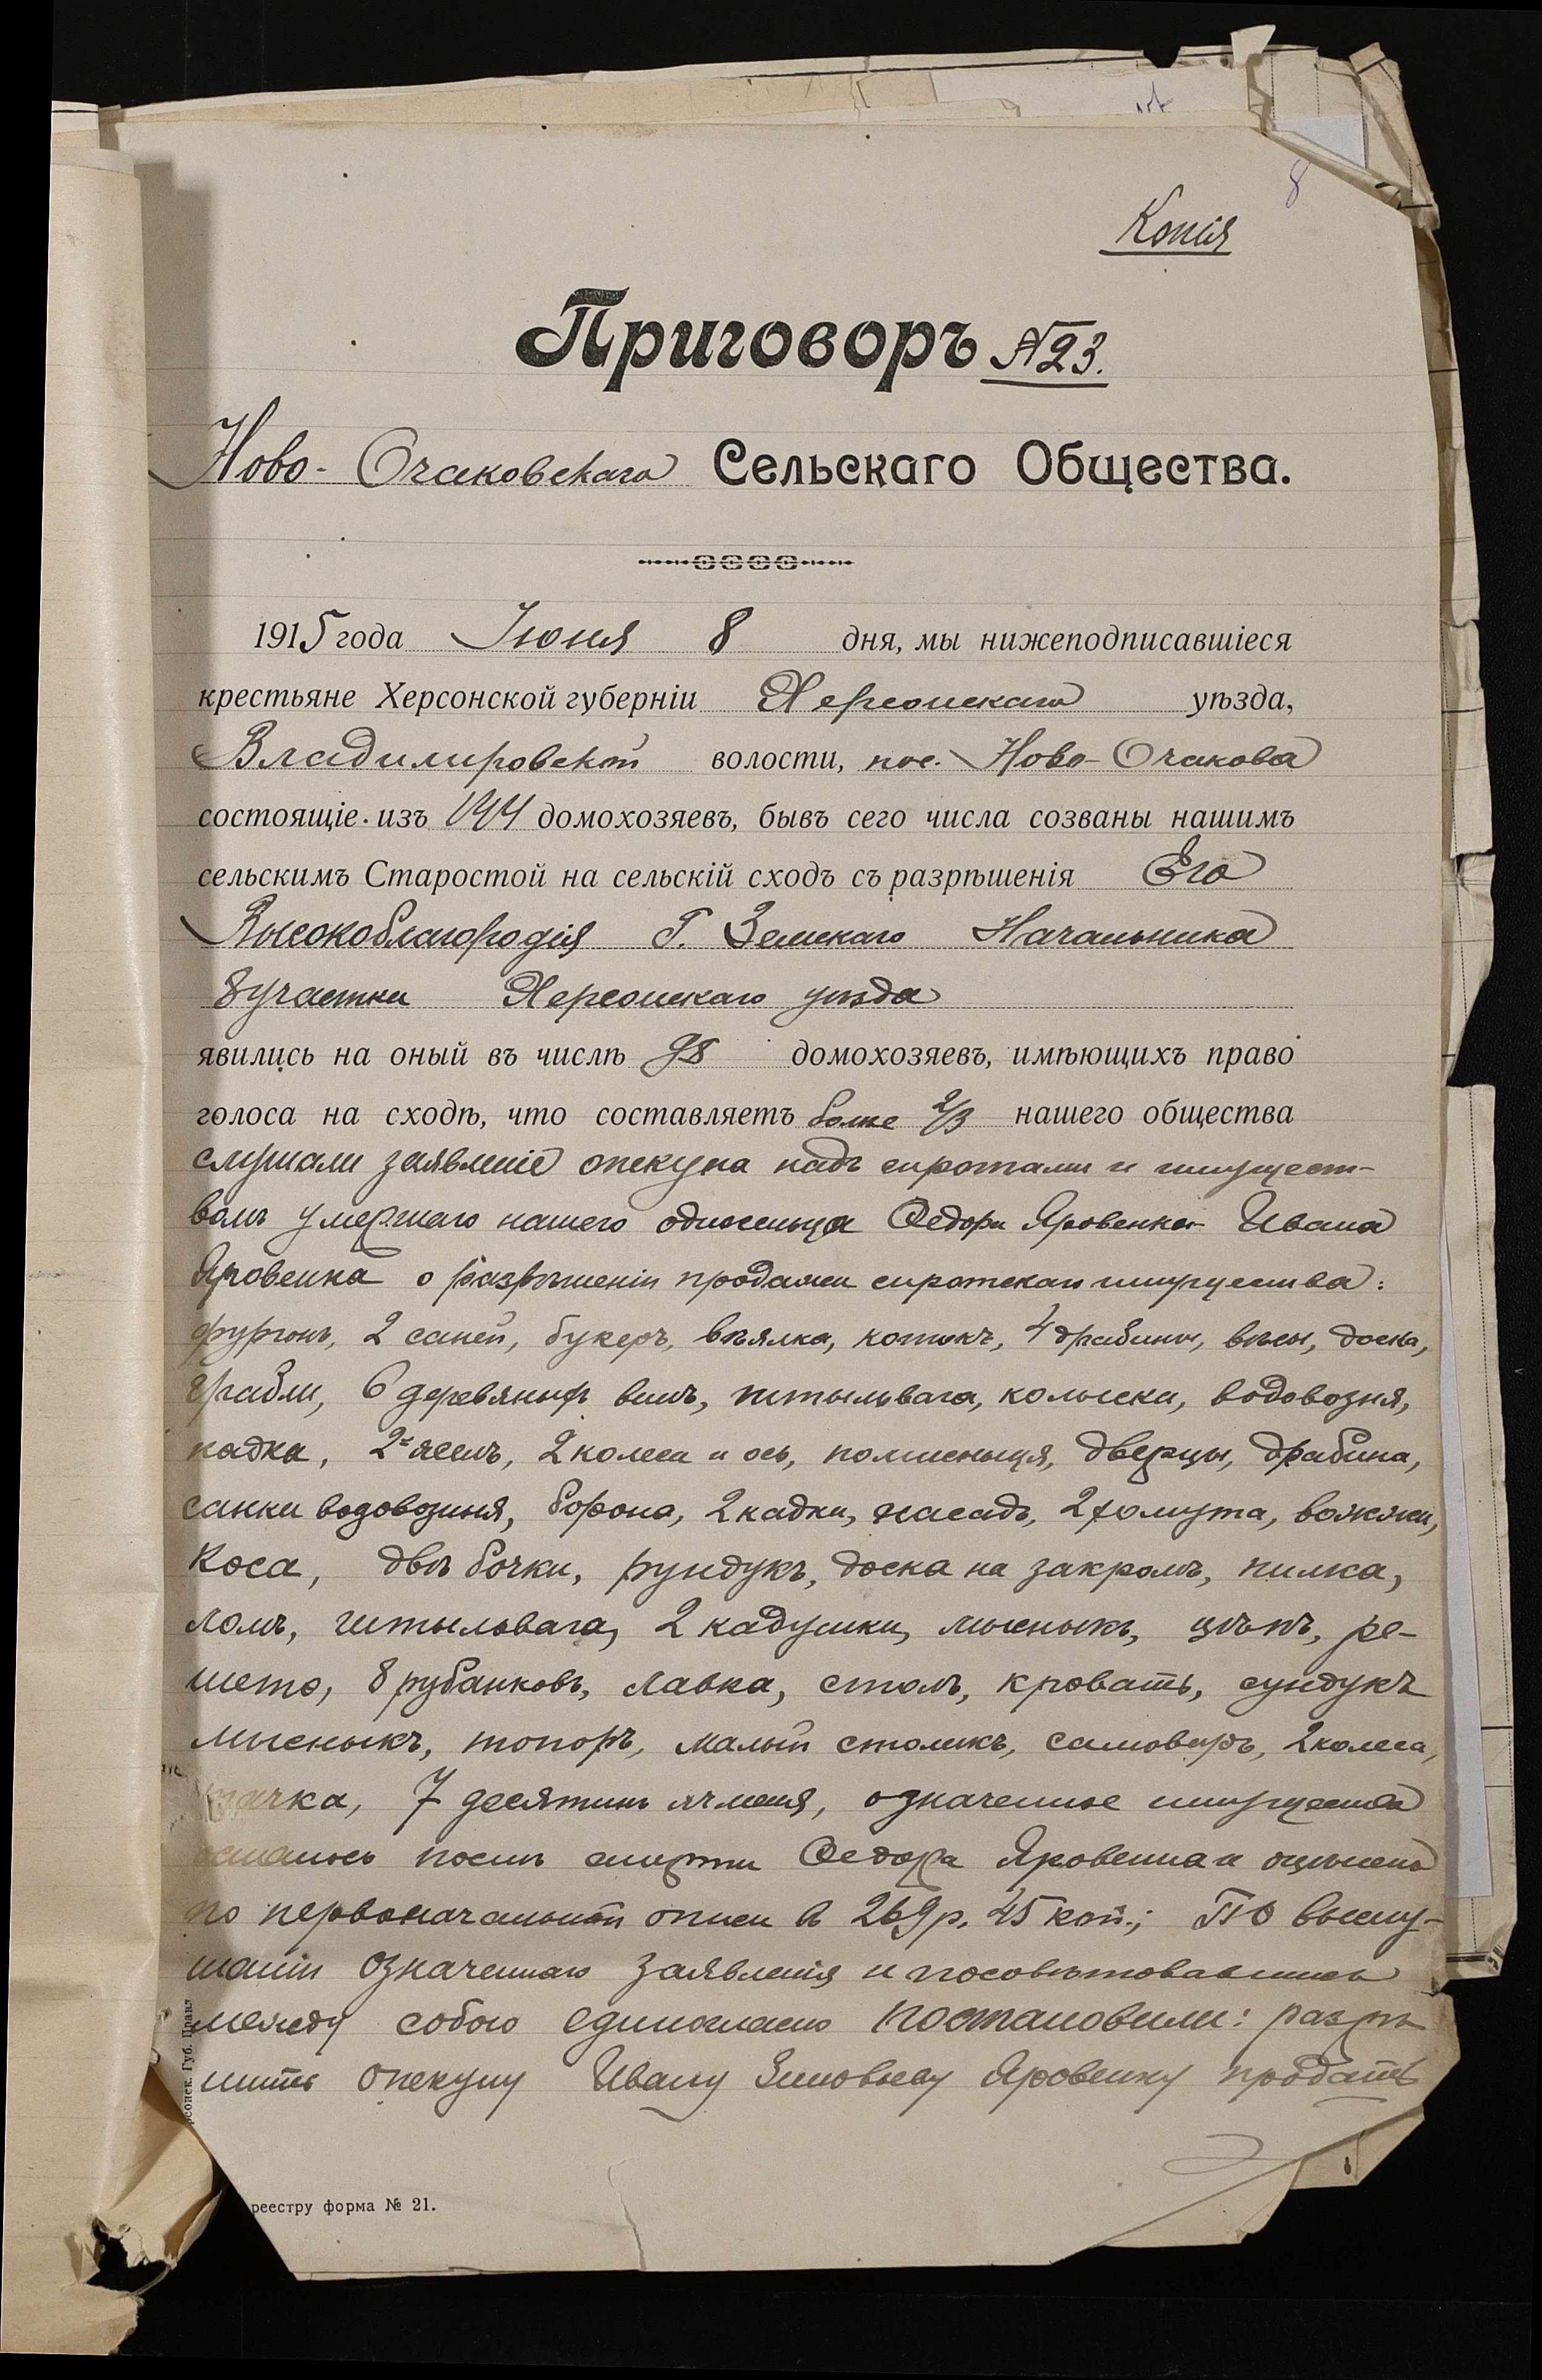 8
Копія
Приговоръ №23.
Ново-Очаковскаго Сельскаго Общества.
1915 года Іюня 8 дня, мы нижеподписавшіеся
крестьяне Херсонской губерніи Херсонскаго уѣзда,
Владимировской волости, пос. Ново-Очакова
состоящіе изъ 144 домохозяевъ, бывъ сего числа созваны нашимъ
сельскимъ Старостой на сельскій сходъ съ разрѣшенія Его
Высокоблагородія Г. Земскаго Начальника
8 участка Херсонскаго уѣзда
явились на оный въ числѣ 98 домохозяевъ, имѣющихъ право
голоса на сходѣ, что составляетъ болѣе 2/3 нашего общества
слушали заявленіе опекуна надъ сиротами и имущест-
вомъ умершаго нашего односельца Федора Яровенка Ивана
Яровенка о разрѣшеніи продажи сиротскаго имущества:
фургонъ, 2 саней, букеръ, вѣялка, котокъ, 4 драбины, вѣсы, доска,
грабли, 6 деревяныхъ вилъ, штыльвага, колыски, водовозня,
кадка, 2е яселъ, 2 колеса и ось, полшеныця, дверцы, драбина,
санки водовозния, борона, 2 кадки, насадъ, 2 хомута, вожжи,
коса, двѣ бочки, рундукъ, доска на закромъ, пилка,
ломъ, штыльвага, 2 кадушки, мысныкъ, цѣпъ, ре-
шето, 8 рубанковъ, лавка, столъ, кровать, сундукъ
мысныкъ, топоръ, малый столикъ, самоваръ, 2 колеса,
тачка, 7 десятинъ ячменя, означенное имущество
осталось послѣ смерти Федора Яровенка и оцѣнено
по первоначальной описи в 269 р. 45 коп.; По выслу-
шаніи означеннаго заявленія и посовѣтовавшись
между собою единогласно постановили: разрѣ
шить опекуну Ивану Зиновьеву Яровенку продать
реестру форма № 21.